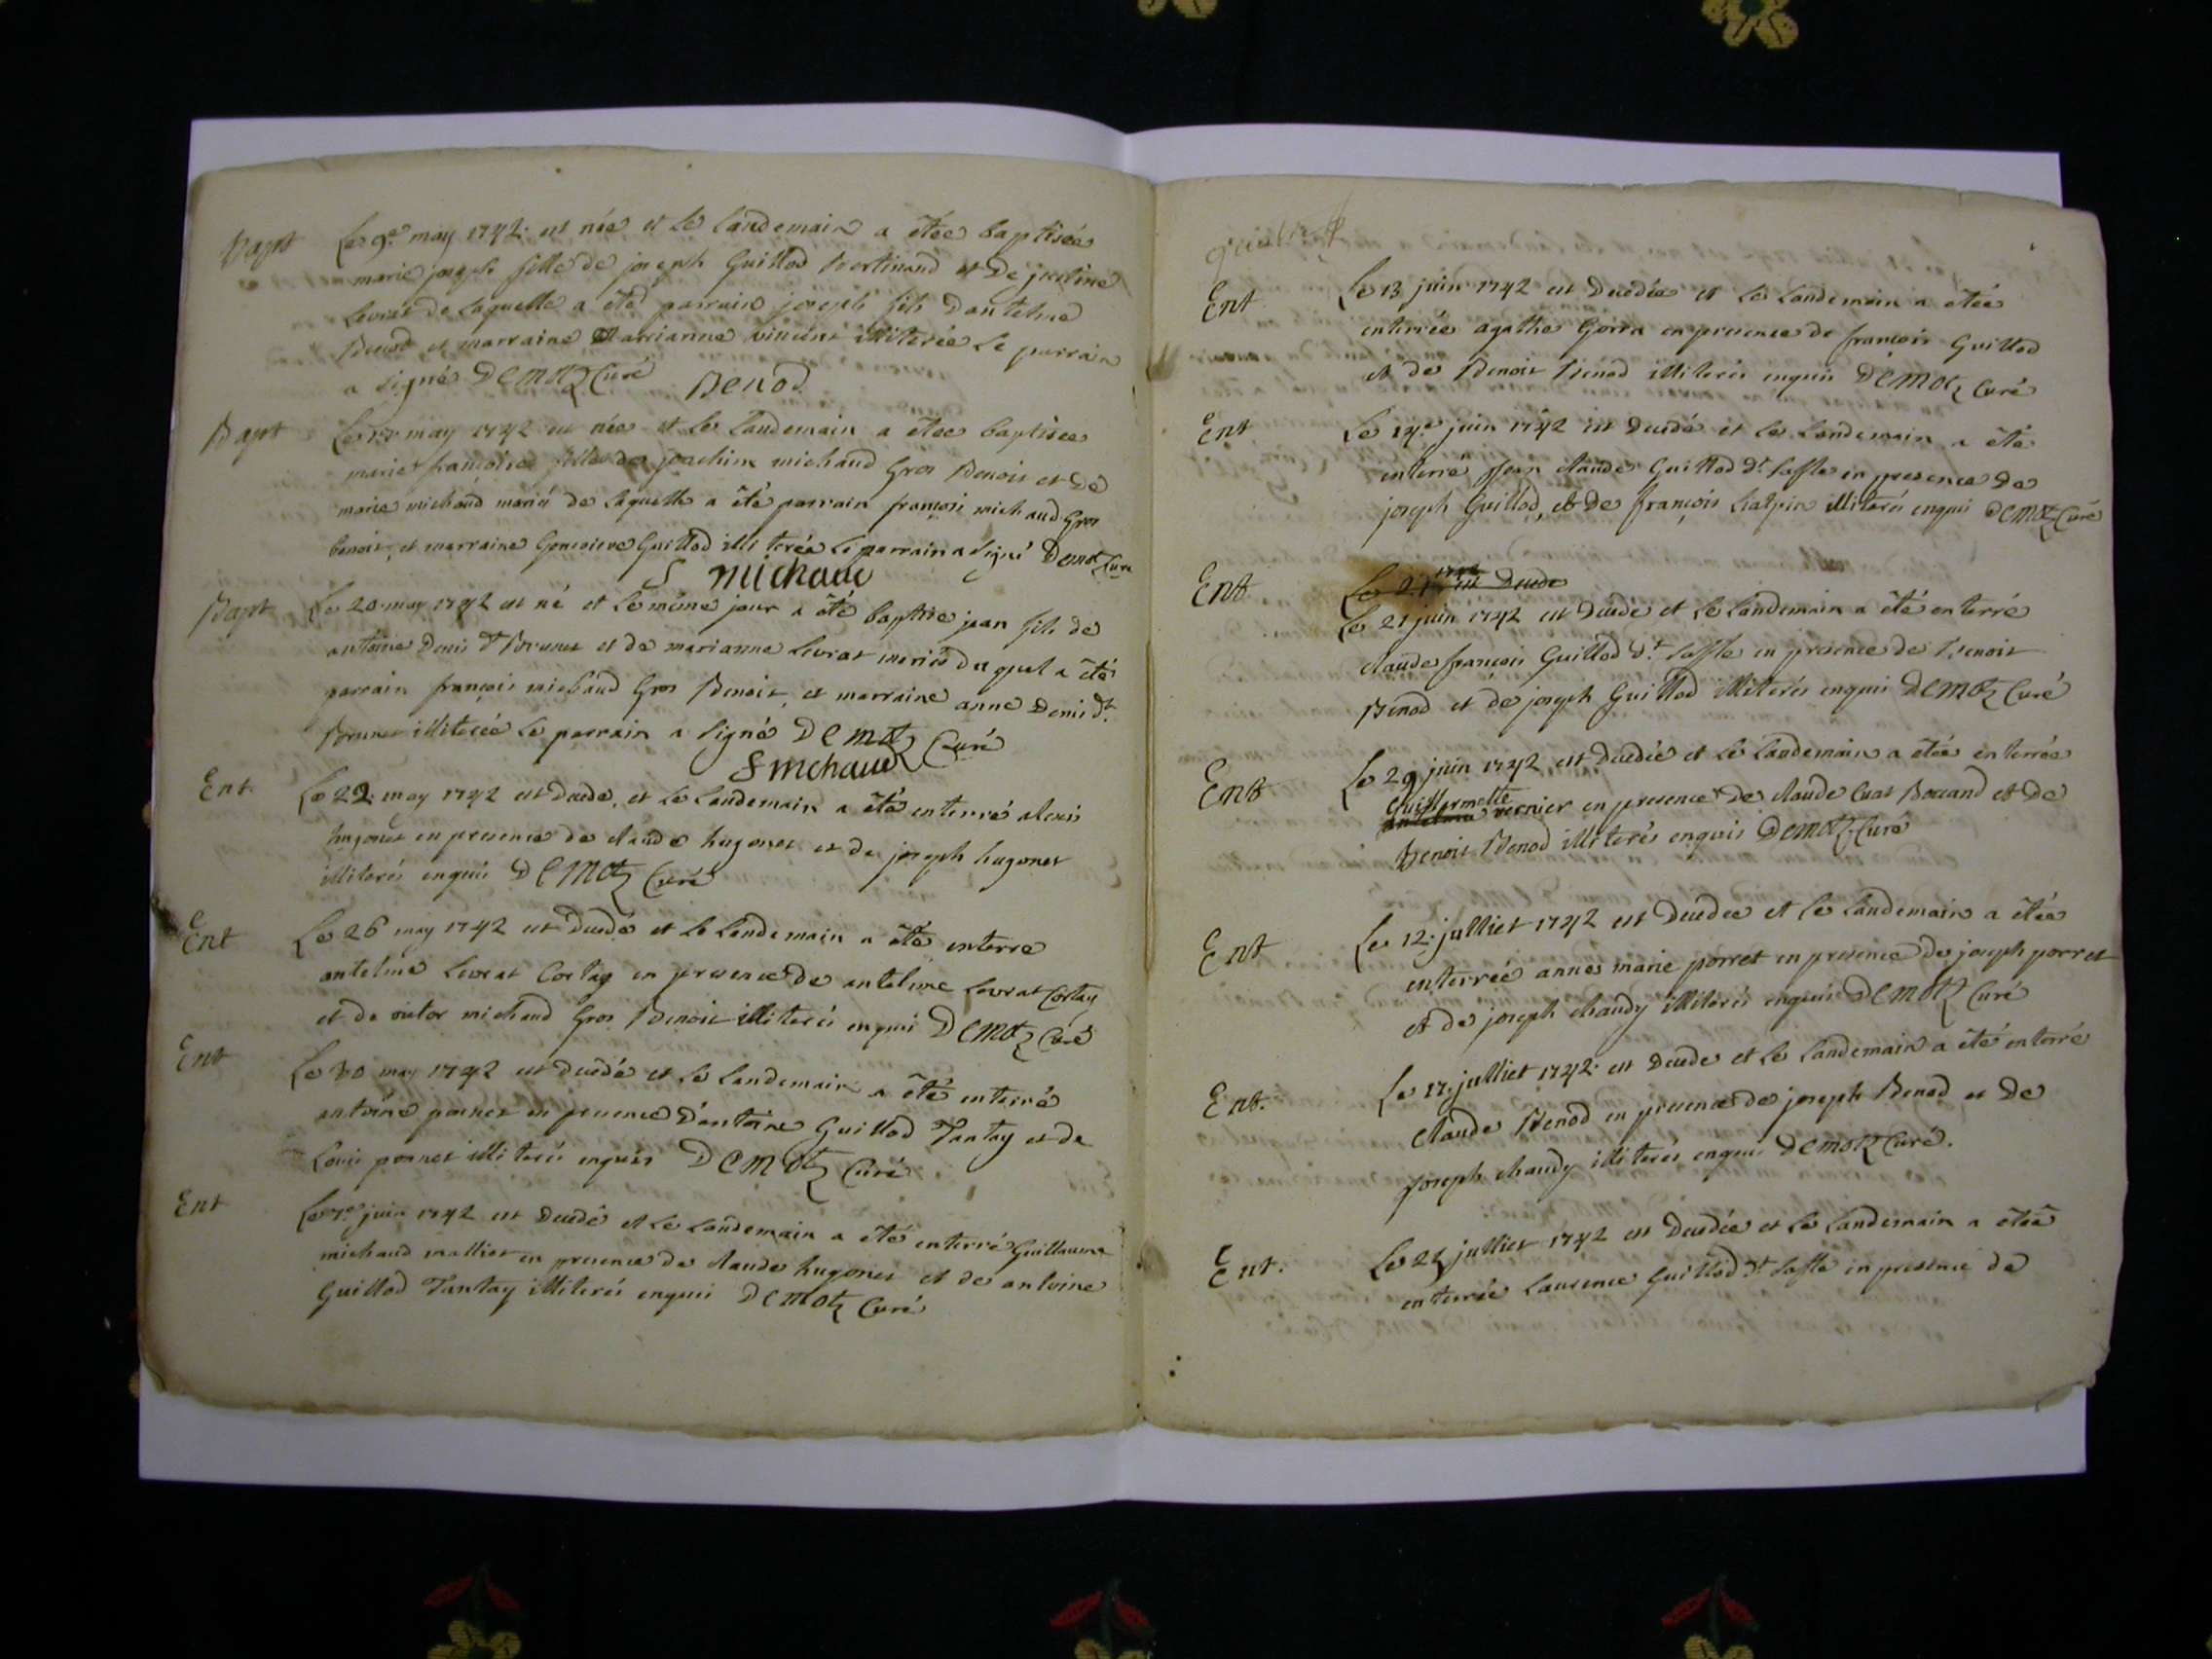 Bapt Le 9e may 1742 est née et le landemain a êtée baptisée
marie joseph fille de joseph Guillod Bertinand et de justine
Levrat de laquelle a êté parrain joseph fils dantelme
Benod et marraine Marianne vincent illiterée le parrain
a signé DEMOTZ Curé Benod
Bapt Le may 1742 est née et le landemain a êtée baptisée
marie françoise fille de joachim michaud Gros Benoit et de
marie michaud mariés de laquelle a êté parrain françois michaud Gros
benoit, et marraine Genevieve Guillod illiterée le parrain a signé Demotz Curé
f michaud
Bapt Le 20 may 1742 est né et le même jour a êté baptisé jean fils de
antoine Denis dt Brunet et de marianne Levrat mariés duquel a êté
parrain françois michaud Gros Benoit, et marraine anne Denis dt.
Brunet illiterée le parrain a signé DEMOTZ Curé
f michaud
Ent. Le 22 may 1742 est decedé, et le landemain a êté enterré alexis
hugonet en presence de claude hugonet et de joseph hugonet
illiterés enquis DEMOTZ Curé
Ent Le 26 may 1742 est decedé et le landemain a êté enterré
antelme Levrat Cortay en presence de antelme Levrat Cortay
et de victor michaud Gros Benoit illiterés enquis DEMOTZ Curé
Ent Le 30 may 1742 est decedé et le landemain a êté enterré
antoine ponnet en presence d'antoine Guillod Tantay et de
Louis ponnet illiterés enquis DEMOTZ Curé
Ent Le 7e juin 1742 est decedé et le landemain a êté enterré Guillaume
michaud mallier en presence de claude hugonet et de antoine
Guillod Tantay illiterés enquis DEMOTZ Curé
Ent Le 13 juin 1742 est decedée et le landemain a êtée
enterrée agathe Gorra en presence de françois Guillod
et de Benoit Benod illiterés enquis DEMOTZ Curé
Ent Le 14e juin 1742 est decedé et le landemain a êté
enterré jean claude Guillod dt. saffle en presence de
joseph Guillod, et de françois Lialpin illiterés enquis DEMOTZ Curé
Ent Le 21 1742 est decedé
Le 21 juin 1742 est decedé et le landemain a êté enterré
claude françois Guillod dt saffle en presence de Benoit
Benod et de joseph Guillod illiterés enquis DEMOTZ Curé
Ent Le 29 juin 1742 est decedée et le landemain a êtée enterrée
Guillermette
vernier en presence de claude Cuat Boccand et de
Benoit Benod illiterés enquis DEMOTZ Curé
Ent Le 12 julliet 1742 est decedée et le landemain a êtée
enterrée anne marie porret en presence de joseph porret
et de joseph chaudy illiterés enquis DEMOTZ Curé
Ent. Le 17 julliet 1742 est decedé et le landemain a êté enterré
claude Benod en presence de joseph Benod et de
joseph chaudy illiterés enquis DEMOTZ Curé.
Ent. Le julliet 1742 est decedée et le landemain a êtée
enterrée Laurence Guillod dt saffle en presence de